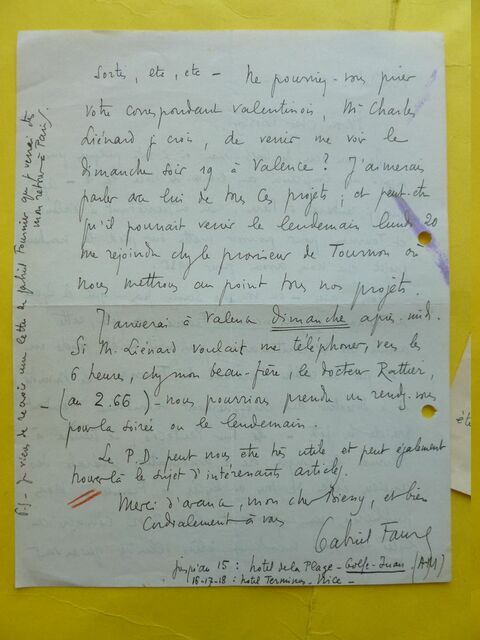 sortes, etc, etc - Ne pourriez-vous prier
votre correspondant valentinois, Mr Charles
Liénard je crois, de venir me voir le
dimanche soir 19 à Valence ? J'aimerais
parler avec lui de tous ces projets ; et peut-être
qu'il pourrait venir le lendemain lundi 20
me rejoindre chez le proviseur de Tournon où
nous mettrons au point tous nos projets.
J'arriverai à Valence dimanche après-midi.
Si M. Liénard voulait me téléphoner, vers les
6 heures, chez mon beau-frère, le docteur Rattier,
(au 2.66) - nous pourrions prendre un rendez-vous
pour la soirée ou le lendemain.
Le P.D. peut nous être très utile et peut également
trouver là le sujet d'intéressants articles.
Merci d'avance, mon cher, et bien
cordialement à vous
Gabriel Faure
jusqu'au 15 : hotel de la Plage - Golfe-Juan - (A.M)
16-17-18 : hotel Terminus - Nice -
P.S - Je viens de recevoir une lettre de Gabriel Fournier que je verrai dès
mon retour à Paris.